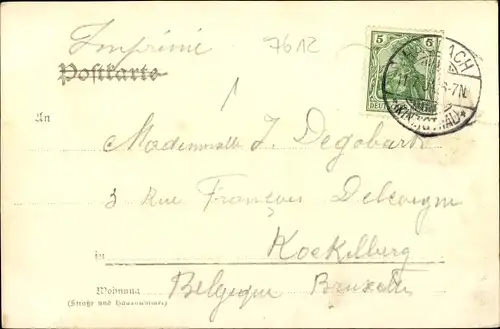 Imprimé 7612
Postkarte
5 5
An
Mademoiselle J. Degobart
3 Rue François Delcoigne
in Koekilberg
Wohnung
(Straße und Hausnummer)
Belgique Bruxelles